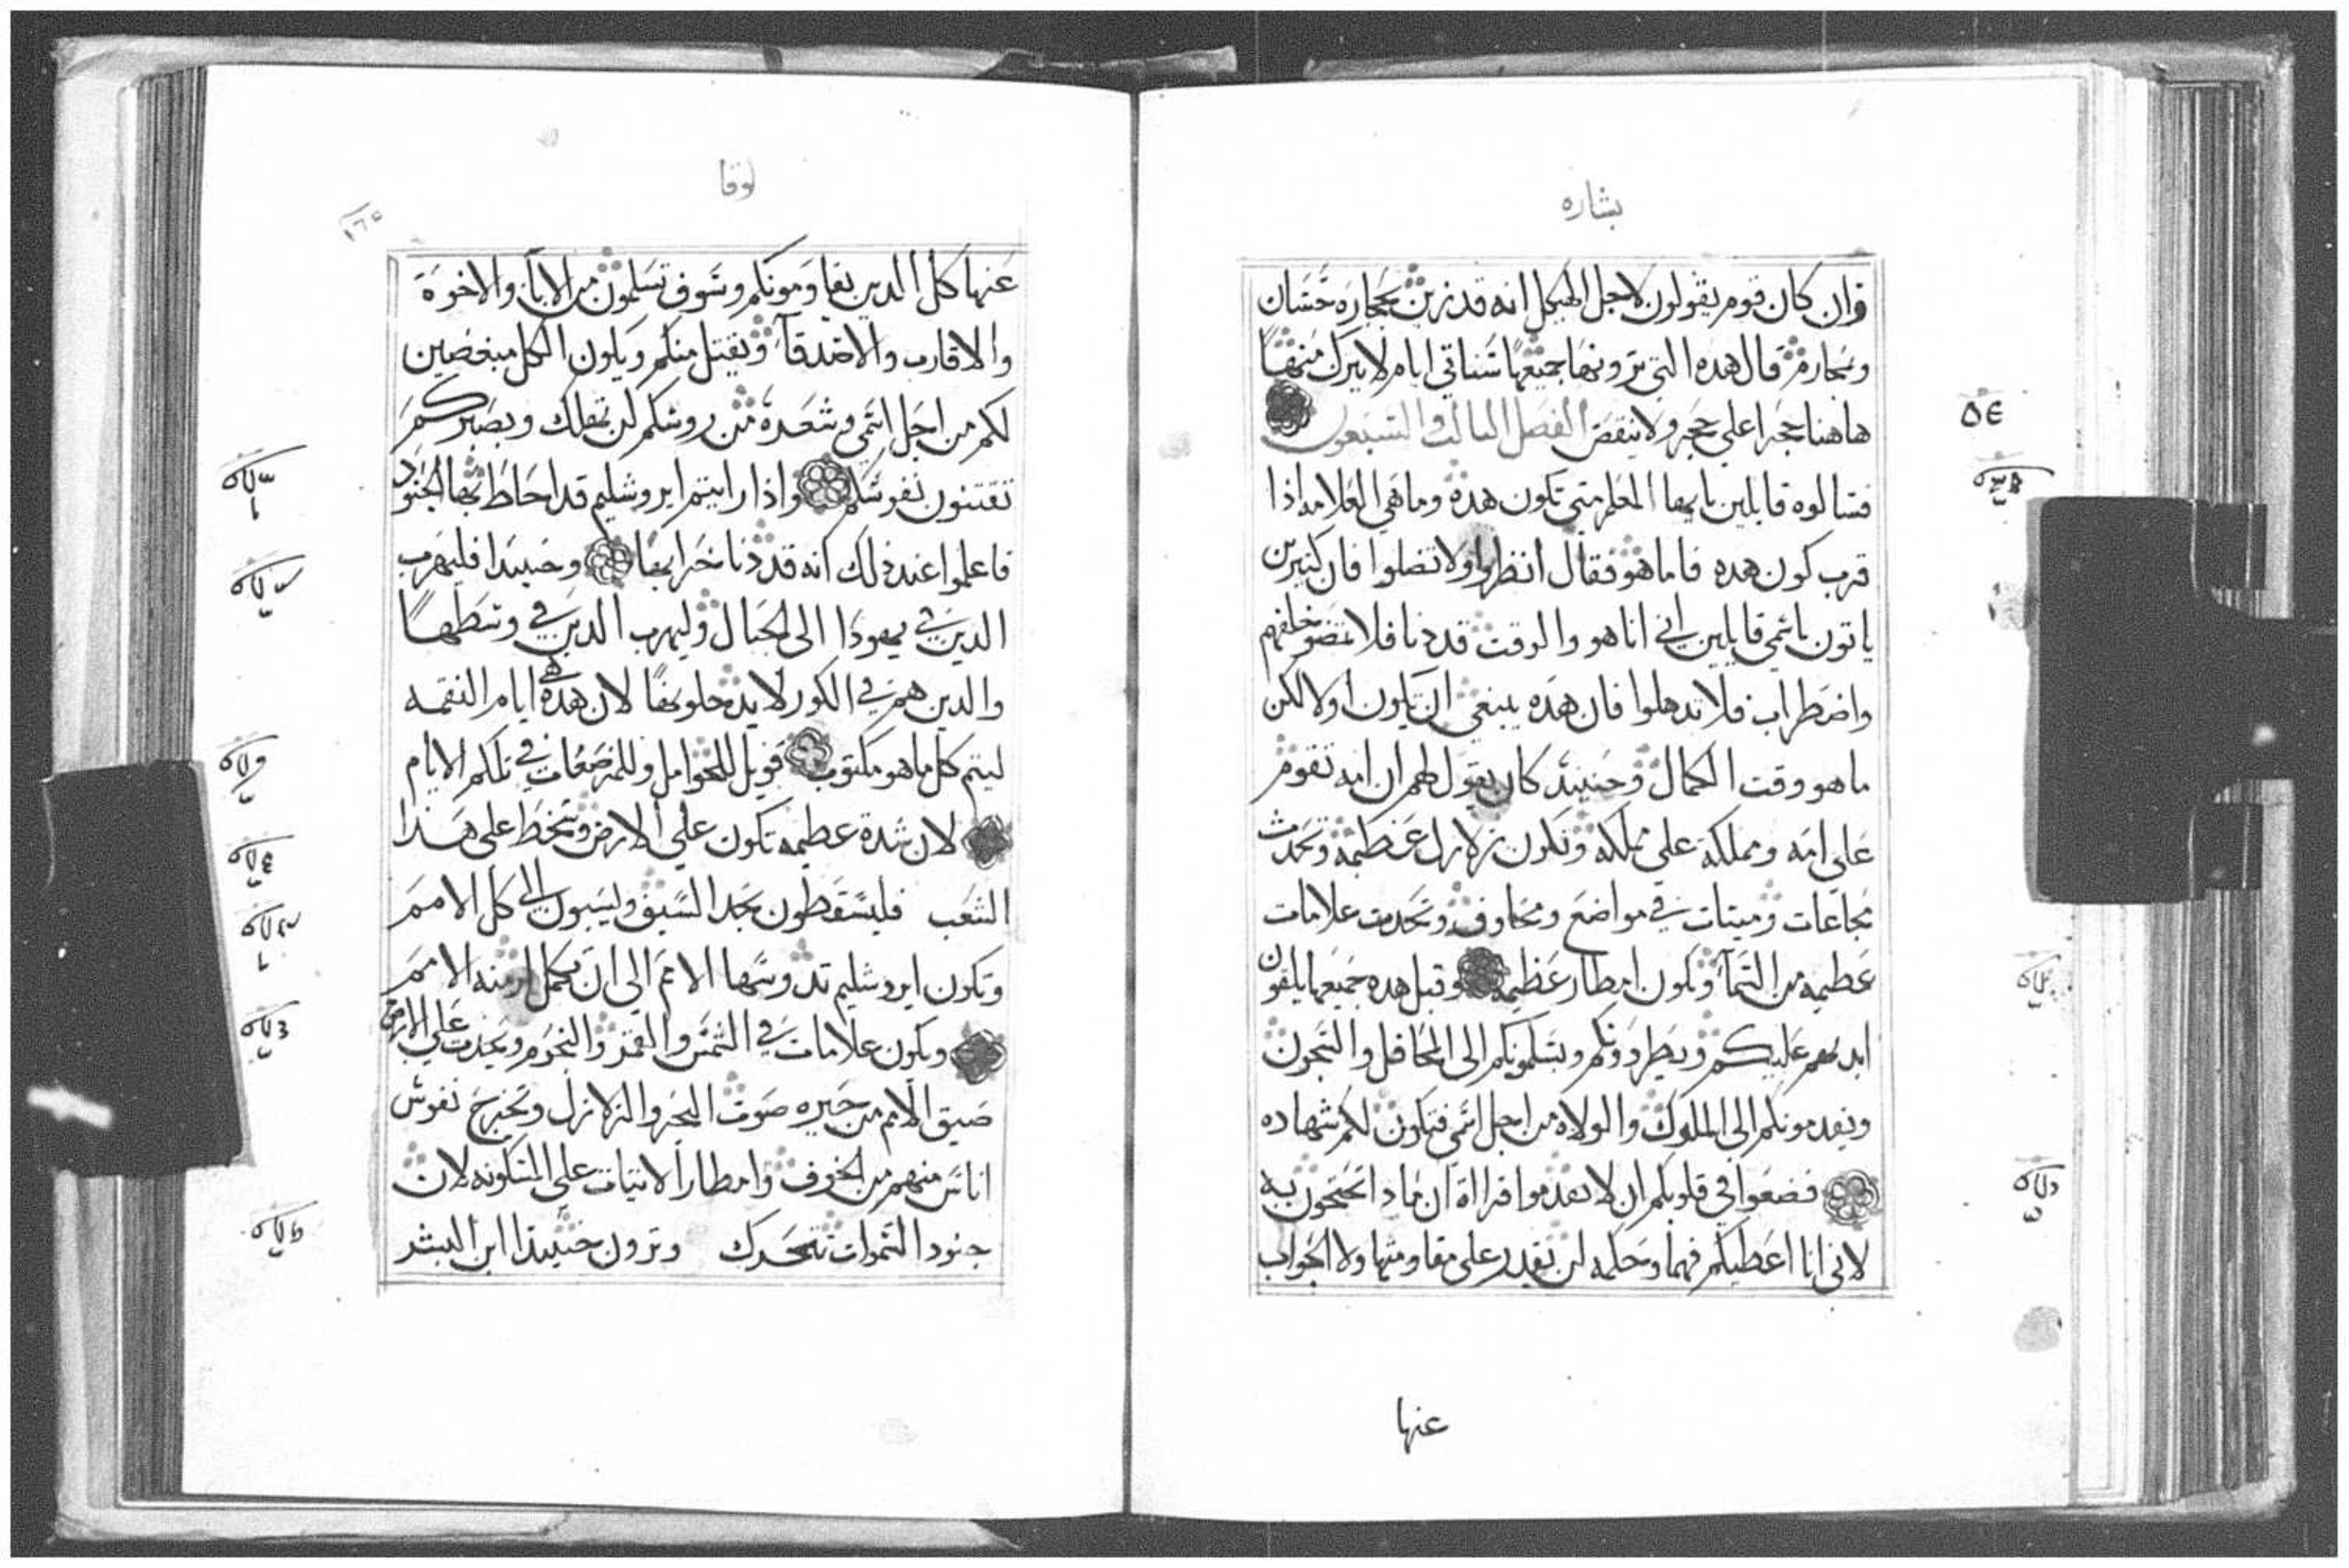 بشاره
وان كان قوم يقولون لاجل الهيكل انه قد زين بحجاره حسان
ومحارم قال هده التي ترونها جميعها ستاتي ايام لا يترك منها
هاهنا حجرا على حجر ولا ينقض الفصل الثالث والسبعون
فسالوه قايلين يايها المعلم متى تكون هده وما هي العلامه اذا
قرب كون هده فاما هو فقال انظروا ولا تضلوا فان كثيرين
ياتون باسمي قايلين اني انا هو والوقت قد دنا فلا تمضوا خلفهم
واضطراب فلا تدهلوا فان هده ينبغي ان تكون اولا لكن
ما هو وقت الكمال وحينيد كان يقول لهم ان امه تقوم
على امه ومملكة على مملكه وتكون زلازل عظيمه وتحدث
مجاعات وميتات في مواضع ومخاوف وتحدث علامات
عظيمه من السمآ وتكون امطار عظيمه وقبل هده جميعها يلقون
ايديهم عليكم ويطردونكم ويسلمونكم الى المحافل والسجون
ويقدمونكم الى الملوك والولاه من اجل اسمي فتكون لكم شهاده
فضعوا في قلوبكم ان لا تقدموا قراءة ان بماذا تحتجون به
لاني انا اعطيكم فهما وحكمه لن يقدر على مقاومتها ولا الجواب
عنها
٥٤
لوقا
١٦٥
عنها كل الدين يقاومونكم وسوف تسلمون من الابآ والاخوة
والاقارب والاصدقآ ويقتل منكم ويكون الكل مبغضين
لكم من اجل اسمي وشعدة من روسكم لن تهلك وبصبركم
تقتنون نفوسكم واذا رايتم ايروشليم قد احاط بها الجنود
فاعلموا عند ذلك انه قد دنا خرابها وحينيدا فليهرب
الدين في يهودا الى الجبال وليهرب الدين في وسطها
والدين هم في الكور لا يدخلونها لان هده هي ايام النقمه
ليتم كل ما هو مكتوب فويل للحوامل وللمرضعات في تلكم الايام
لان شدة عظيمه تكون على الارض وسخط على هذا
الشعب فليسقطون بحد السيف وليسبون الى كل الامم
وتكون ايروشليم تدوسها الامم الى ان تكمل ازمنه الامم
وتكون علامات في الشمس والقمر والنجوم ويحدث على الارض
ضيق الامم من حيره صوت البحر والزلازل وتخرج نفوس
اناس منهم من الخوف وانتظار الاتيات على المسكونه لان
جنود السموات تتحرك وترون حينيدا ابن البشر